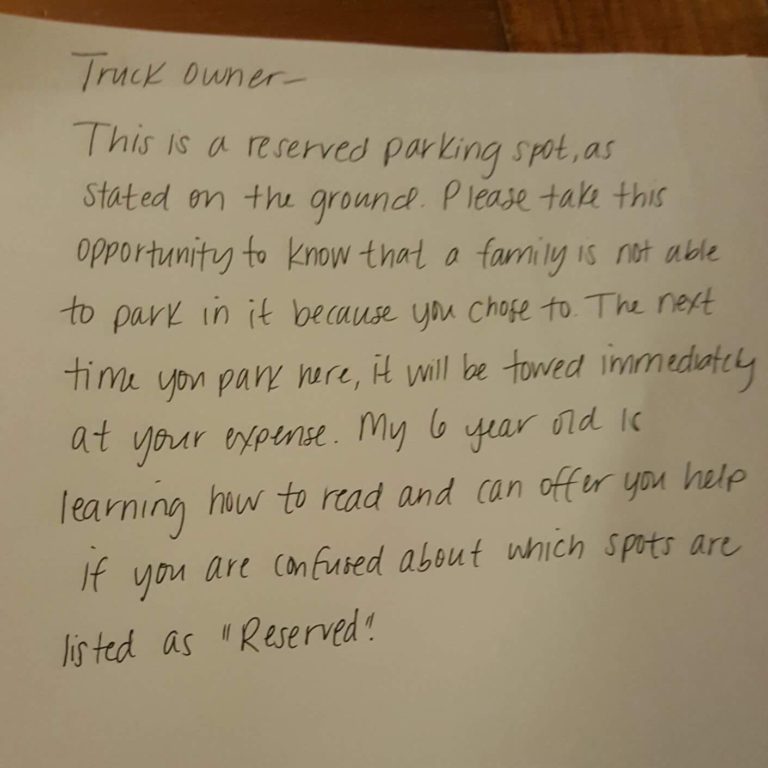 Truck owner-
This is a reserved parking spot, as
stated on the ground. Please take this
opportunity to know that a family is not able
to park in it because you chose to. The next
time you park here, it will be towed immediately
at your expense. My 6 year old is
learning how to read and can offer you help
if you are confused about which spots are
listed as "Reserved".